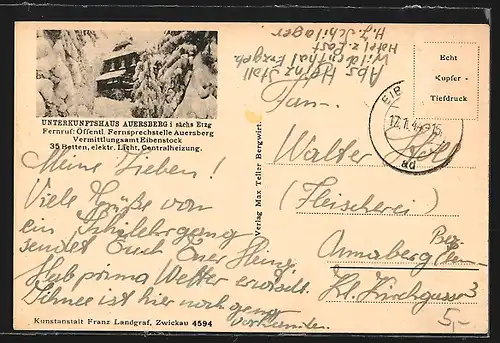 UNTERKUNFTSHAUS AUERSBERG i sächs Erzg
Fernruf: Öffentl. Fernsprechstelle Auersberg
Vermittlungsamt Eibenstock
35 Betten, elektr. Licht, Centralheizung.
Meine Lieben!
Viele Grüße von
ein Skilehrgang
sendet Euch Euer Heinz
Hab prima Wetter erwischt.
Schnee ist hier noch genug
vorhanden.
Kunstanstalt Franz Landgraf, Zwickau 4594
Verlag Max Teller Bergwirt.
Abs Heinz Noll
Wildenthal Erzgeb.
Hotel z. Post
H.J. Skilager
Echt
Kupfer-
Tiefdruck
EIB
17.1.4
Fam.
Walter Noll
(Fleischerei)
Annaberg
Kl. Kirchgasse 3
5,-